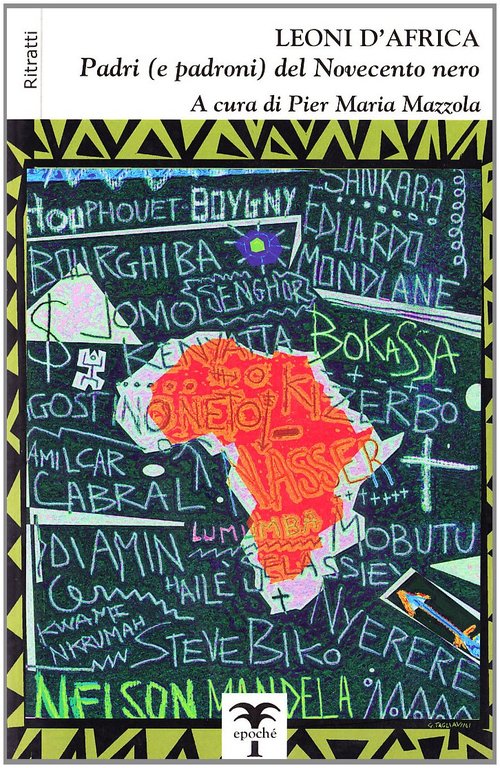 Ritratti
LEONI D'AFRICA
Padri (e padroni) del Novecento nero
A cura di Pier Maria Mazzola
HOUPHOUET BOYGNY
SANKARA
EDUARDO
MONDLANE
BOURGHIBA
SENGHOR
JOMO
KENYATTA
BOKASSA
GOSTINO NETO
KI ZERBO
NASSER
AMILCAR
CABRAL
LUMUMBA
MOBUTU
IDI AMIN
HAILÈ SELASSIE
KWAME
NKRUMAH
STEVE BIKO
NYERERE
NELSON MANDELA
G. TAGLIAVINI
epoché